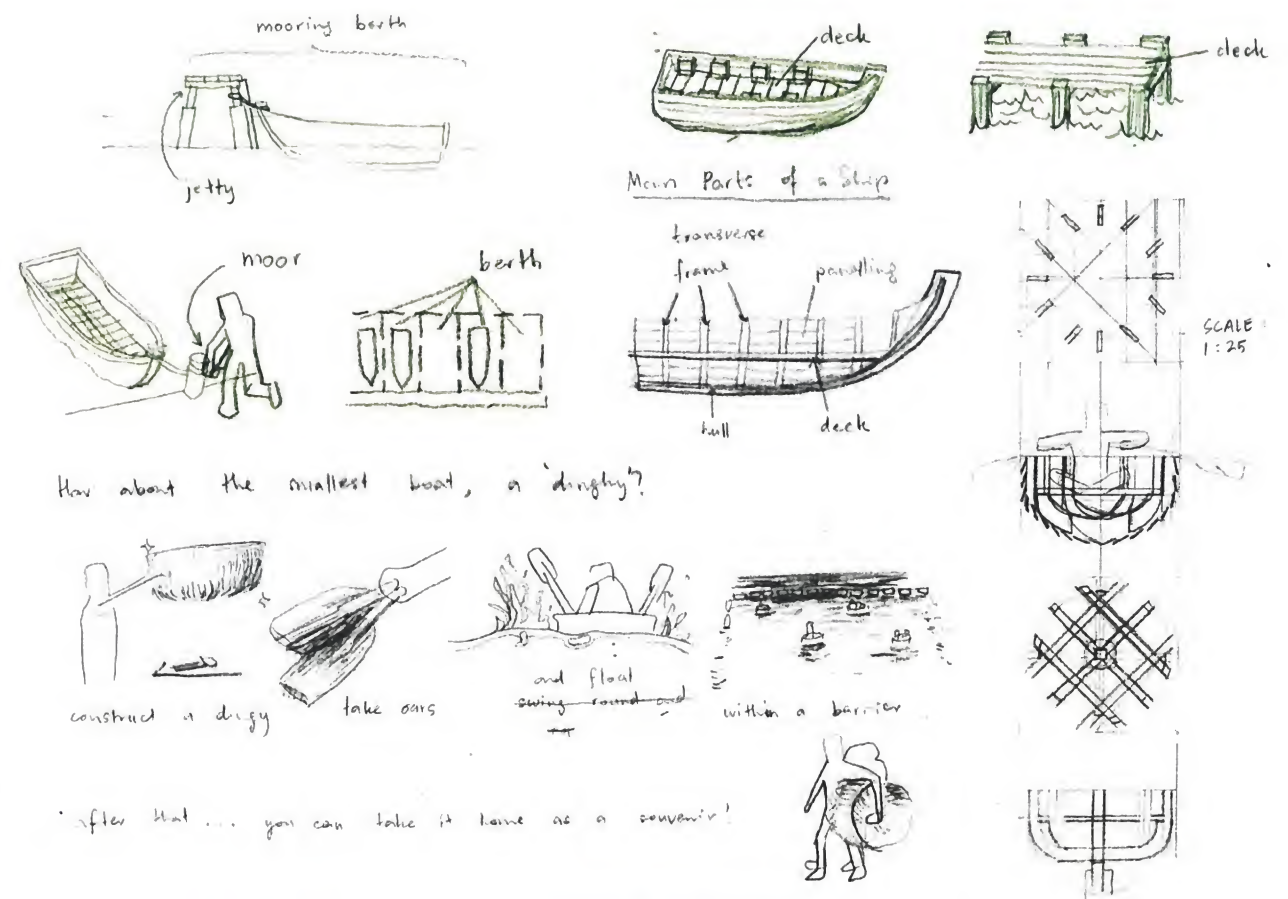 mooring berth
jetty
deck
deck
Main Parts of a Ship
moor
berth
transverse
frame
panelling
hull
deck
SCALE
1:25
How about the smallest boat, a 'dinghy'?
construct a dingy
take oars
and float
swing round and
within a barrier
after that... you can take it home as a souvenir!